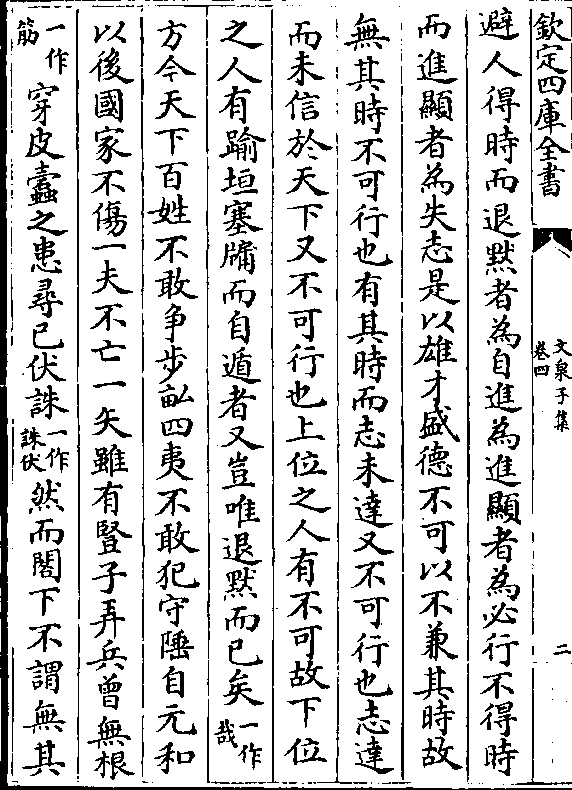 欽定四庫全書
文泉子集
卷四
二
避人得時而退黙者為自進為進顯者為必行不得時
而進顯者為失志是以雄才盛德不可以不兼其時故
無其時不可行也有其時而志未達又不可行也志達
而未信於天下又不可行也上位之人有不可故下位
之人有踰垣塞牗而自遁者又豈唯退黙而已矣一作哉
方今天下百姓不敢争步畝四夷不敢犯守陲自元和
以後國家不傷一夫不亡一矢雖有豎子弄兵曾無根
一作筋穿皮蠧之患尋已伏誅一作誅伏然而閣下不謂無其